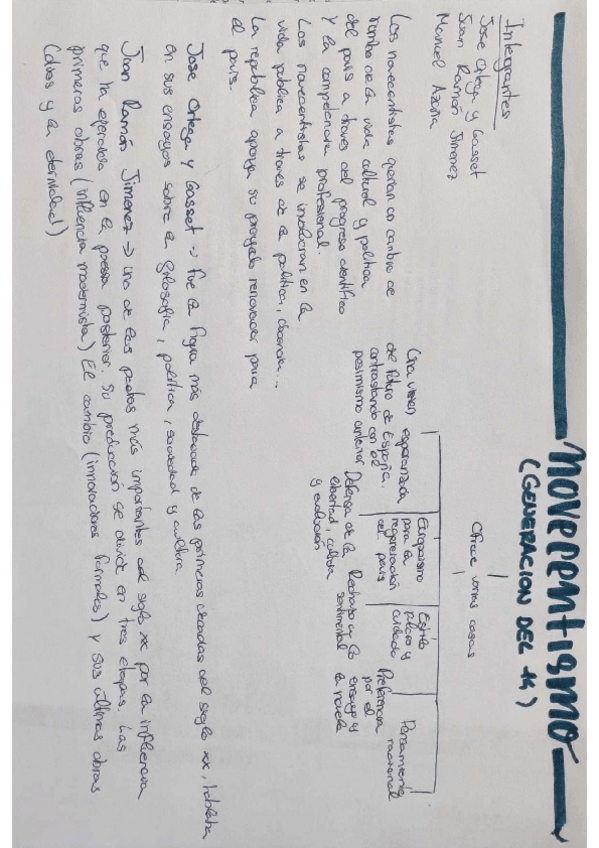 NOVECENTISMO
(GENERACION DEL 14)
Integrantes
Jose Ortega y Gasset
Juan Ramón Jimenez
Manuel Azaña
Ofrece varias cosas
Una vision esperanzada
del futuro de España,
contrastando con el
pesimismo anterior
Europaismo
para la
regeneración
del país
Estilo
pulcro y
cuidado
Pensamiento
racional
Defensa de la
libertad, cultura
y educación
Rechazo a lo
sentimental
Preferencia
por el
ensayo y
la novela
Los novecentistas querian un cambio de
rumbo de la vida cultural y politica
del país a traves del progreso cientifico
y la competencia profesional.
Los novecentistas se involucran en la
vida pública a traves de la politica, docencia...
La republica apoya su proyecto renovador para
el país.
Jose Ortega y Gasset -> fue la figura más destacada de las primeras decadas del siglo xx,
en sus ensayos sobre la filosofia, politica, sociedad y cultura
Juan Ramón Jimenez -> uno de los poetas más importantes del siglo xx por la influencia
que ha ejercido en la poesia posterior. Su produccion se divide en tres etapas. Las
primeras obras (influencia modernista) El cambio (innovaciones formales) y sus últimas obras
(dios y la eternidad)